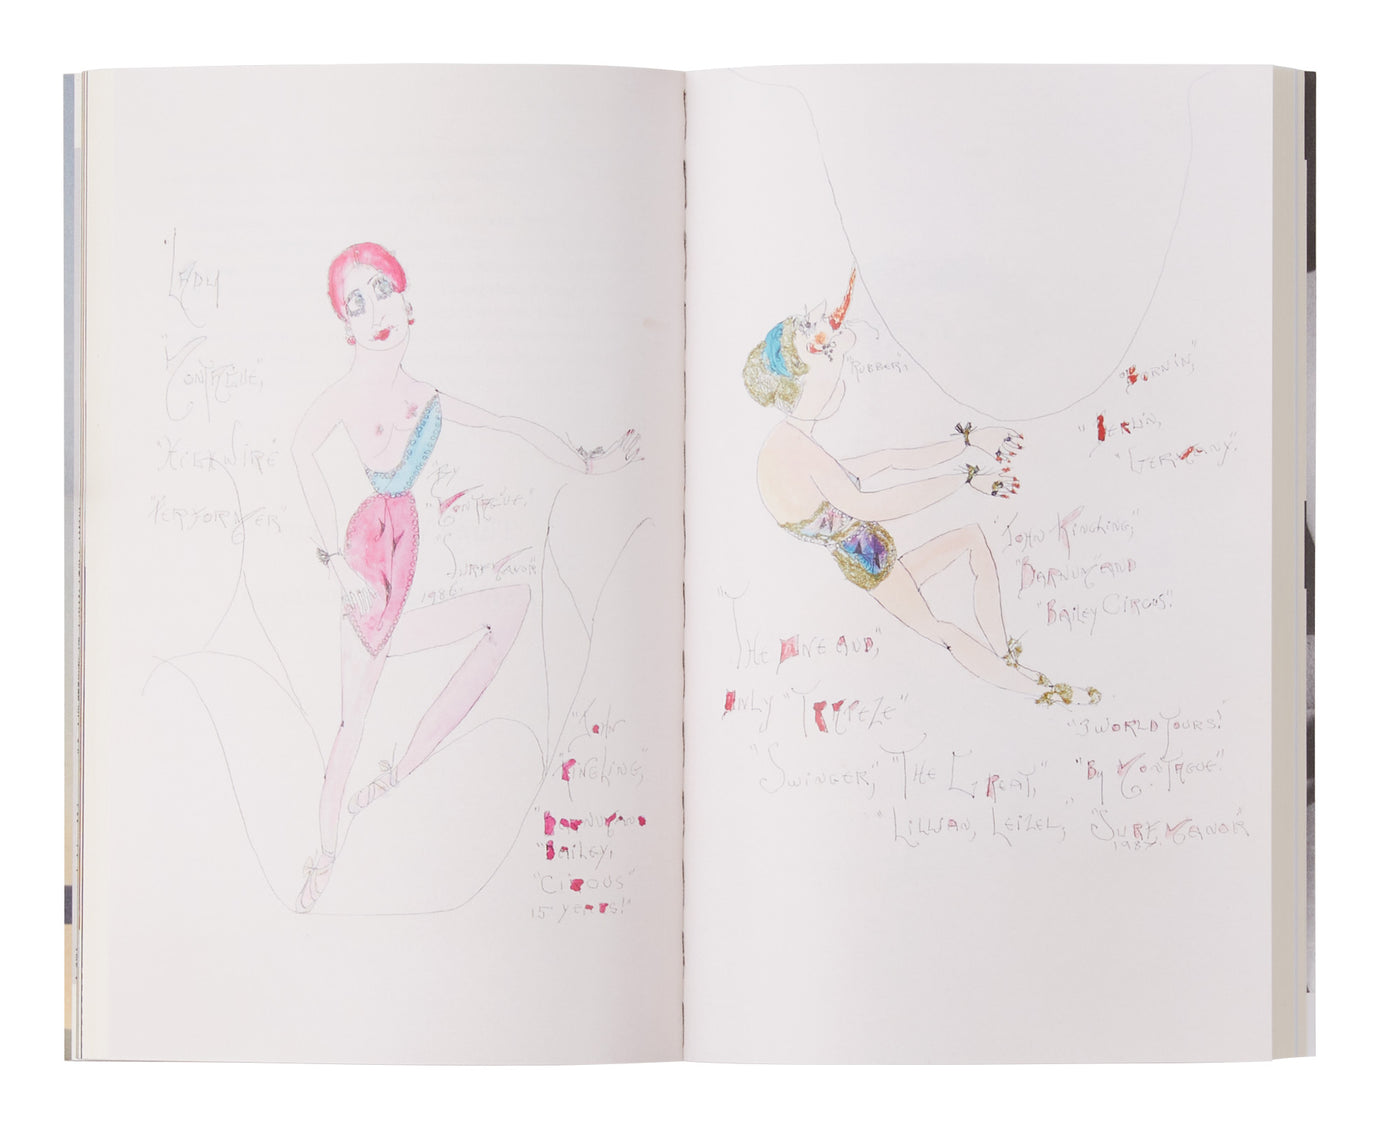 "Lady
"Montague,"
"Highwire
"Performer"
By
"Montague."
"Surfmanor"
1986.
"John
"Ringling,
"Barnum and
"Bailey,
"Circus"
15 years!"
"Rubber,"
"Born in,"
"Berlin,
"Germany."
"John Ringling,"
"Barnum and
"Bailey Circus"!
"The One and,"
Only "Trapeze"
"Swinger," "The Great,"
"Lillian, Leizel,"
"3 World Tours!"
"By Montague."
"Surfmanor"
1987.